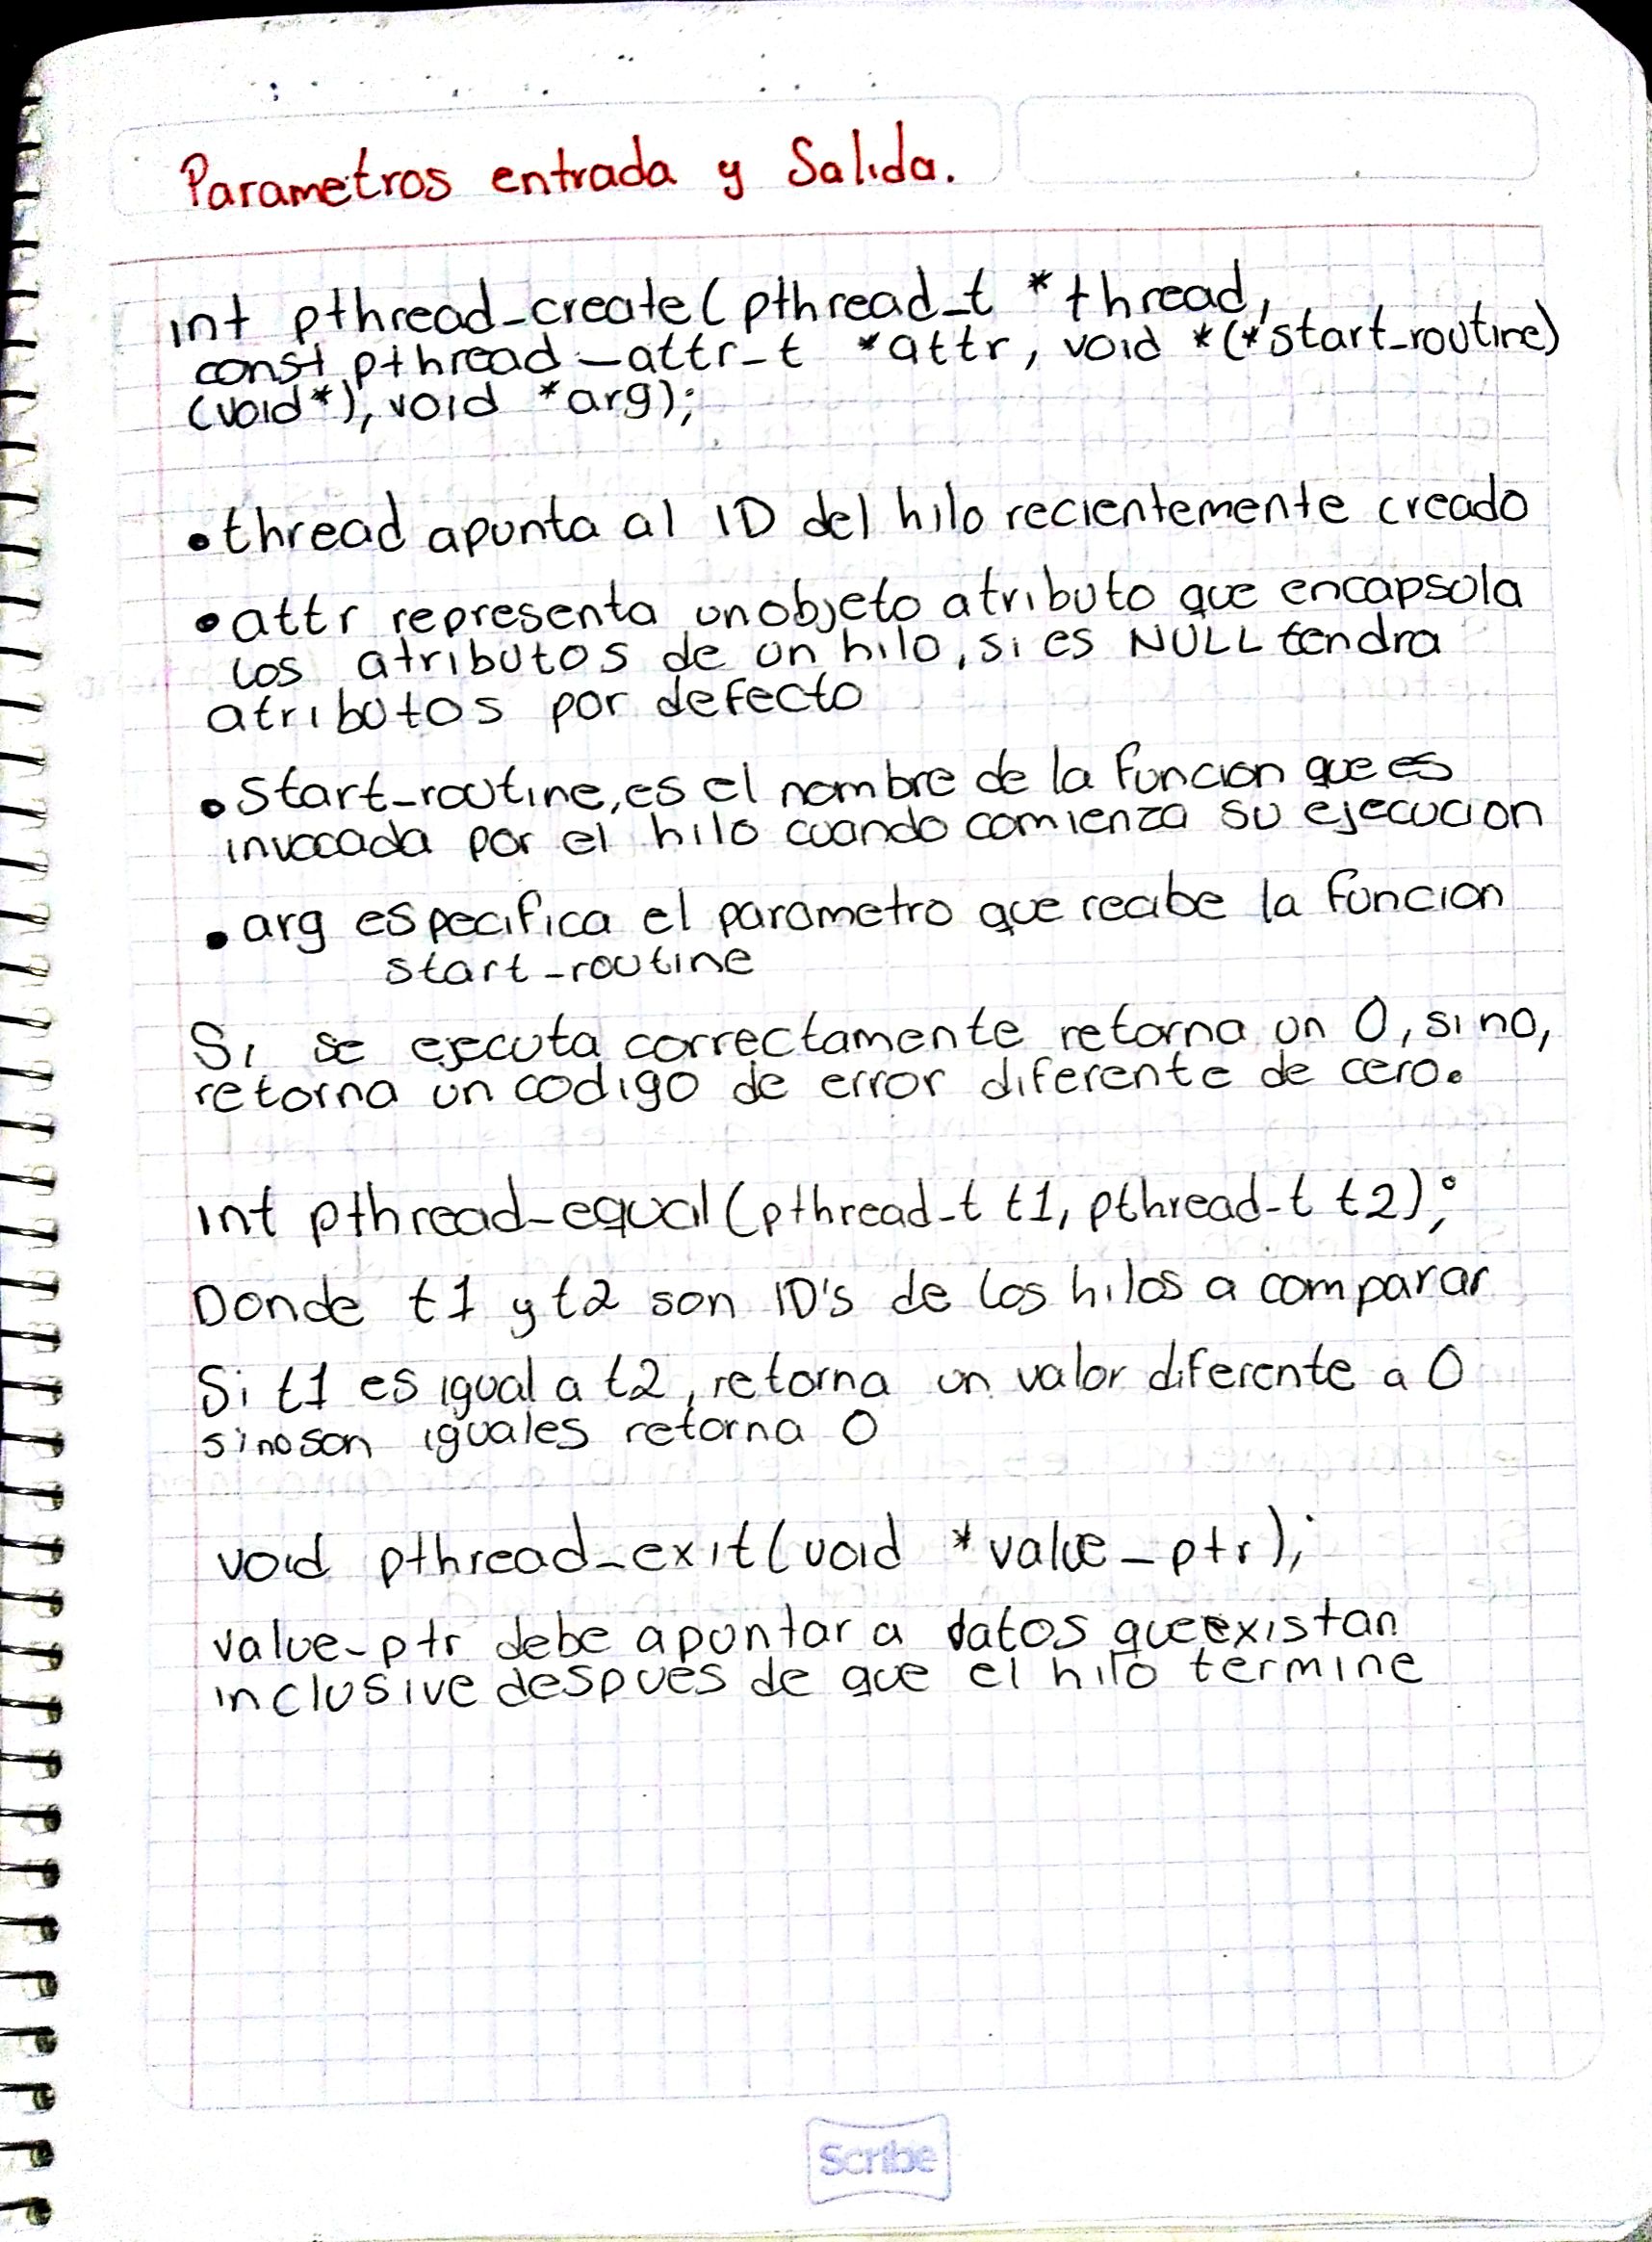 Parametros entrada y Salida.
int pthread_create(pthread_t *thread,
const pthread_attr_t *attr, void *(*start_routine)
(void*), void *arg);
• thread apunta al ID del hilo recientemente creado
• attr representa un objeto atributo que encapsula
los atributos de un hilo, si es NULL tendra
atributos por defecto
• Start_routine, es el nombre de la funcion que es
invocada por el hilo cuando comienza su ejecucion
• arg especifica el parametro que recibe la funcion
start_routine
Si se ejecuta correctamente retorna un 0, si no,
retorna un codigo de error diferente de cero.
int pthread_equal(pthread_t t1, pthread_t t2);
Donde t1 y t2 son ID's de los hilos a comparar
Si t1 es igual a t2, retorna un valor diferente a 0
si no son iguales retorna 0
void pthread_exit(void *value_ptr);
value_ptr debe apuntar a datos que existan
inclusive despues de que el hilo termine
Scribe